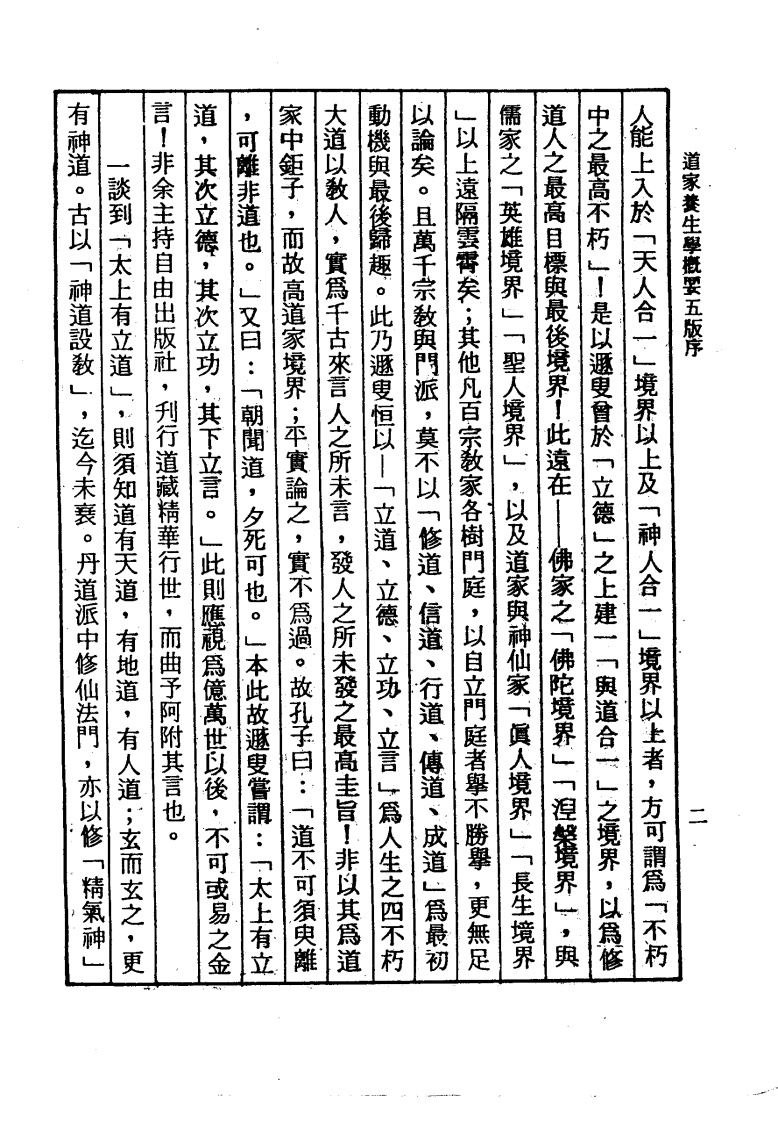 道家養生學概要五版序
二
人能上入於「天人合一」境界以上及「神人合一」境界以上者，方可謂爲「不朽
中之最高不朽」！是以遯叟曾於「立德」之上建一「與道合一」之境界，以爲修
道人之最高目標與最後境界！此遠在——佛家之「佛陀境界」「湼槃境界」，與
儒家之「英雄境界」「聖人境界」，以及道家與神仙家「眞人境界」「長生境界
」以上遠隔雲霄矣；其他凡百宗教家各樹門庭，以自立門庭者擧不勝擧，更無足
以論矣。且萬千宗教與門派，莫不以「修道、信道、行道、傳道、成道」爲最初
動機與最後歸趣。此乃遯叟恒以—「立道、立德、立功、立言」爲人生之四不朽
大道以教人，實爲千古來言人之所未言，發人之所未發之最高圭旨！非以其爲道
家中鉅子，而故高道家境界；平實論之，實不爲過。故孔子曰：「道不可須臾離
，可離非道也。」又曰：「朝聞道，夕死可也。」本此故遯叟嘗謂：「太上有立
道，其次立德，其次立功，其下立言。」此則應視爲億萬世以後，不可或易之金
言！非余主持自由出版社，刋行道藏精華行世，而曲予阿附其言也。
一談到「太上有立道」，則須知道有天道，有地道，有人道；玄而玄之，更
有神道。古以「神道設教」，迄今未衰。丹道派中修仙法門，亦以修「精氣神」